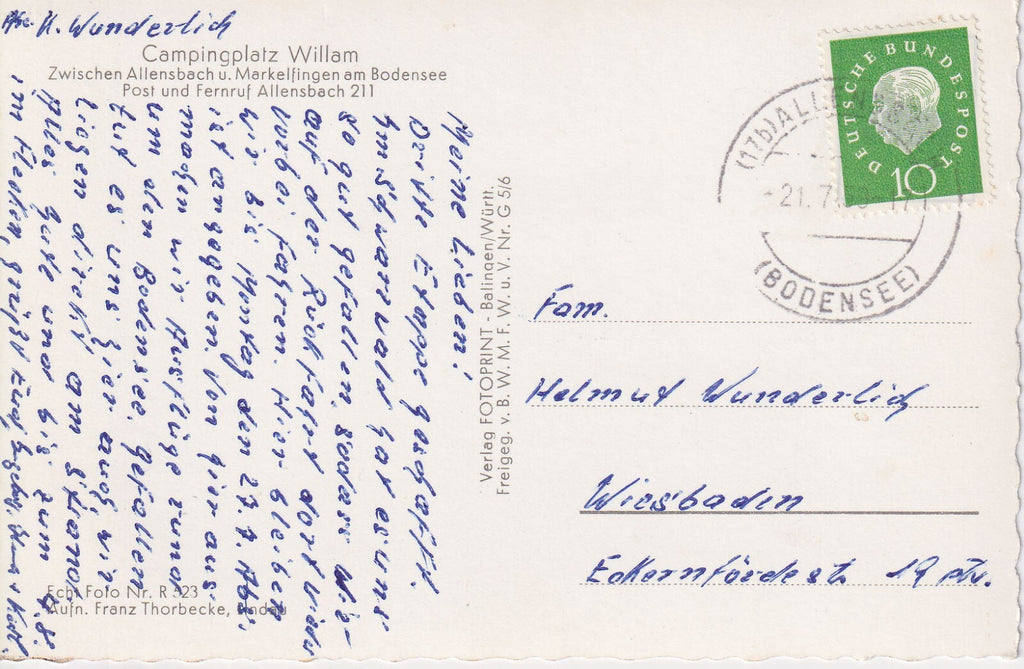 Abs. H. Wunderlich
Campingplatz Willam
Zwischen Allensbach u. Markelfingen am Bodensee
Post und Fernruf Allensbach 211
Meine Lieben!
Dritte Etappe geschafft.
Im Schwarzwald hat es uns
so gut gefallen, sodass wir
auf der Rückfahrt dort wieder
vorbei fahren. Hier bleiben
wir bis Montag den 27.7. Abs.
ist angegeben. Von hier aus
machen wir Ausflüge rund
um den Bodensee. Gefallen
tut es uns hier auch, wir
liegen direkt am Strand.
Alles Gute und bis zum
im Flecken, grüßt Euch
Echt Foto Nr. R 523
Aufn. Franz Thorbecke, Lindau
Verlag FOTOPRINT - Balingen/Württ.
Freigeg. v. B. W. M. F. W. u. V. Nr. G 5/6
DEUTSCHE BUNDESPOST
10
(17b) ALLEN
21. 7.
(BODENSEE)
Fam.
Helmut Wunderlich
Wiesbaden
Eckernfördestr. 19 ptr.